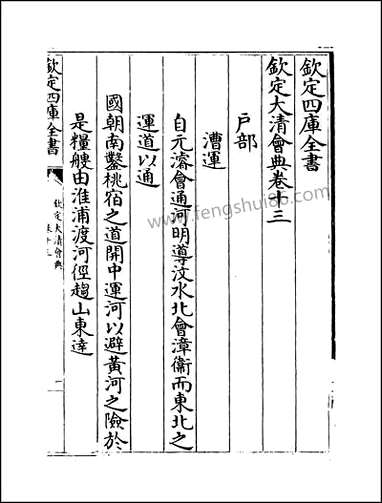 欽定四庫全書
欽定大清會典卷十三
戶部
漕運
自元濬會通河明導汶水北會漳衛而東北之
運道以通
國朝南鑿桃宿之道開中運河以避黃河之險於
是糧艘由淮浦渡河徑趨山東達
欽定四庫全書
欽定大清會典
卷十三
一
www.fengshui86.com